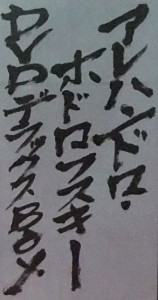 アレハンドロ・
ホドロフスキー
DVDデラックスBOX.